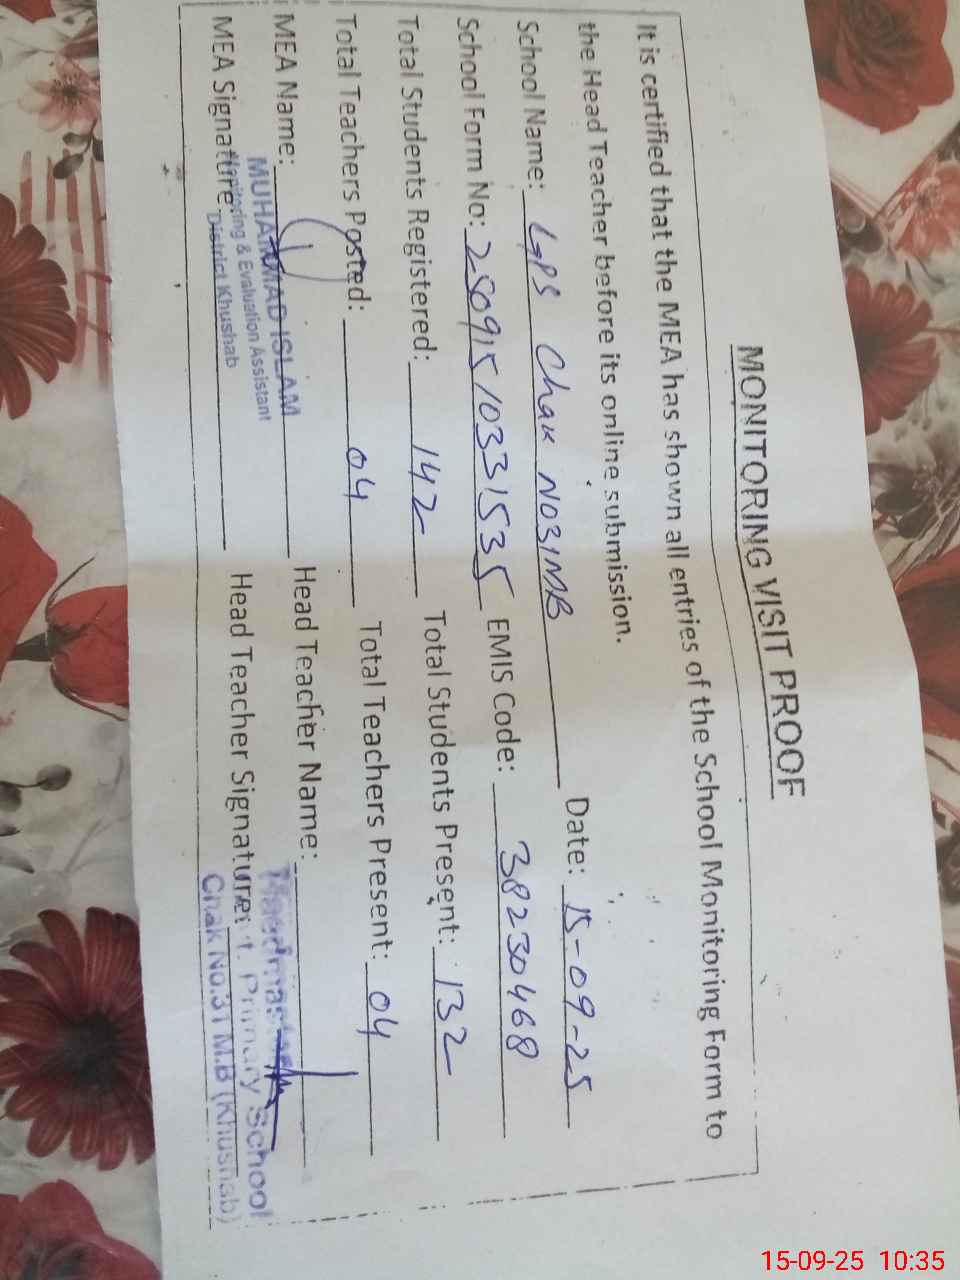 MONITORING VISIT PROOF
It is certified that the MEA has shown all entries of the School Monitoring Form to
the Head Teacher before its online submission.
School Name: GPS Chak NO31MB Date: 15-09-25
School Form No: 25091510331535 EMIS Code: 38230468
Total Students Registered: 142 Total Students Present: 132
Total Teachers Posted: 04 Total Teachers Present: 04
MEA Name: Head Teacher Name:
MUHAMMAD ISLAM Headmaster
Monitoring & Evaluation Assistant
MEA Signature Head Teacher Signature: t. Primary School
District Khushab Chak No.31 M.B (Khushab)
15-09-25 10:35